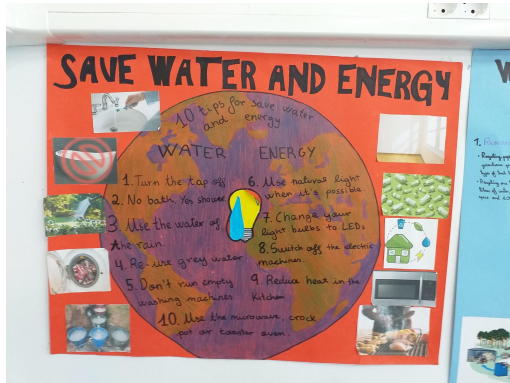 SAVE WATER AND ENERGY
10 tips for save water
and energy
WATER
1. Turn the tap off
2. No bath. Yes shower
3. Use the water of
the rain.
4. Re-use grey water
5. Don't run empty
washing machines
ENERGY
6. Use natural light
when it's possible.
7. Change your
light bulbs to LEDs.
8. Switch off the electric
machines.
9. Reduce heat in the
kitchen
10. Use the microwave, crock
pot or toaster oven.
W
1.